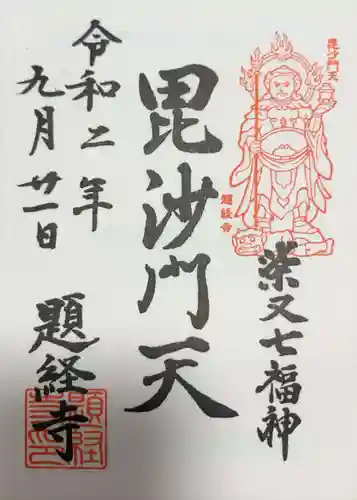 毘沙門天
題経寺
柴又七福神
毘沙門天
令和二年
九月廿一日
題経寺
題経寺